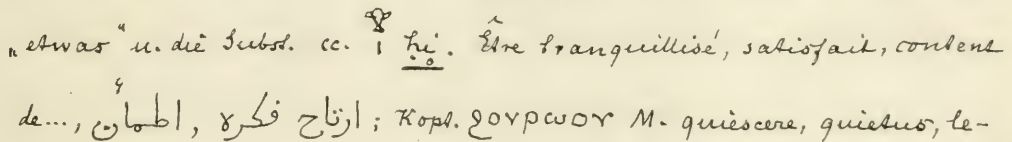 „etwas“ u. die Subst. cc. 𓁷 ḥi. Être tranquillisé, satisfait, content
de..., اطمأن, ارتاح فكره; Kopt. ϩⲟⲩⲣⲱⲟⲩ M. quiescere, quietus, le-